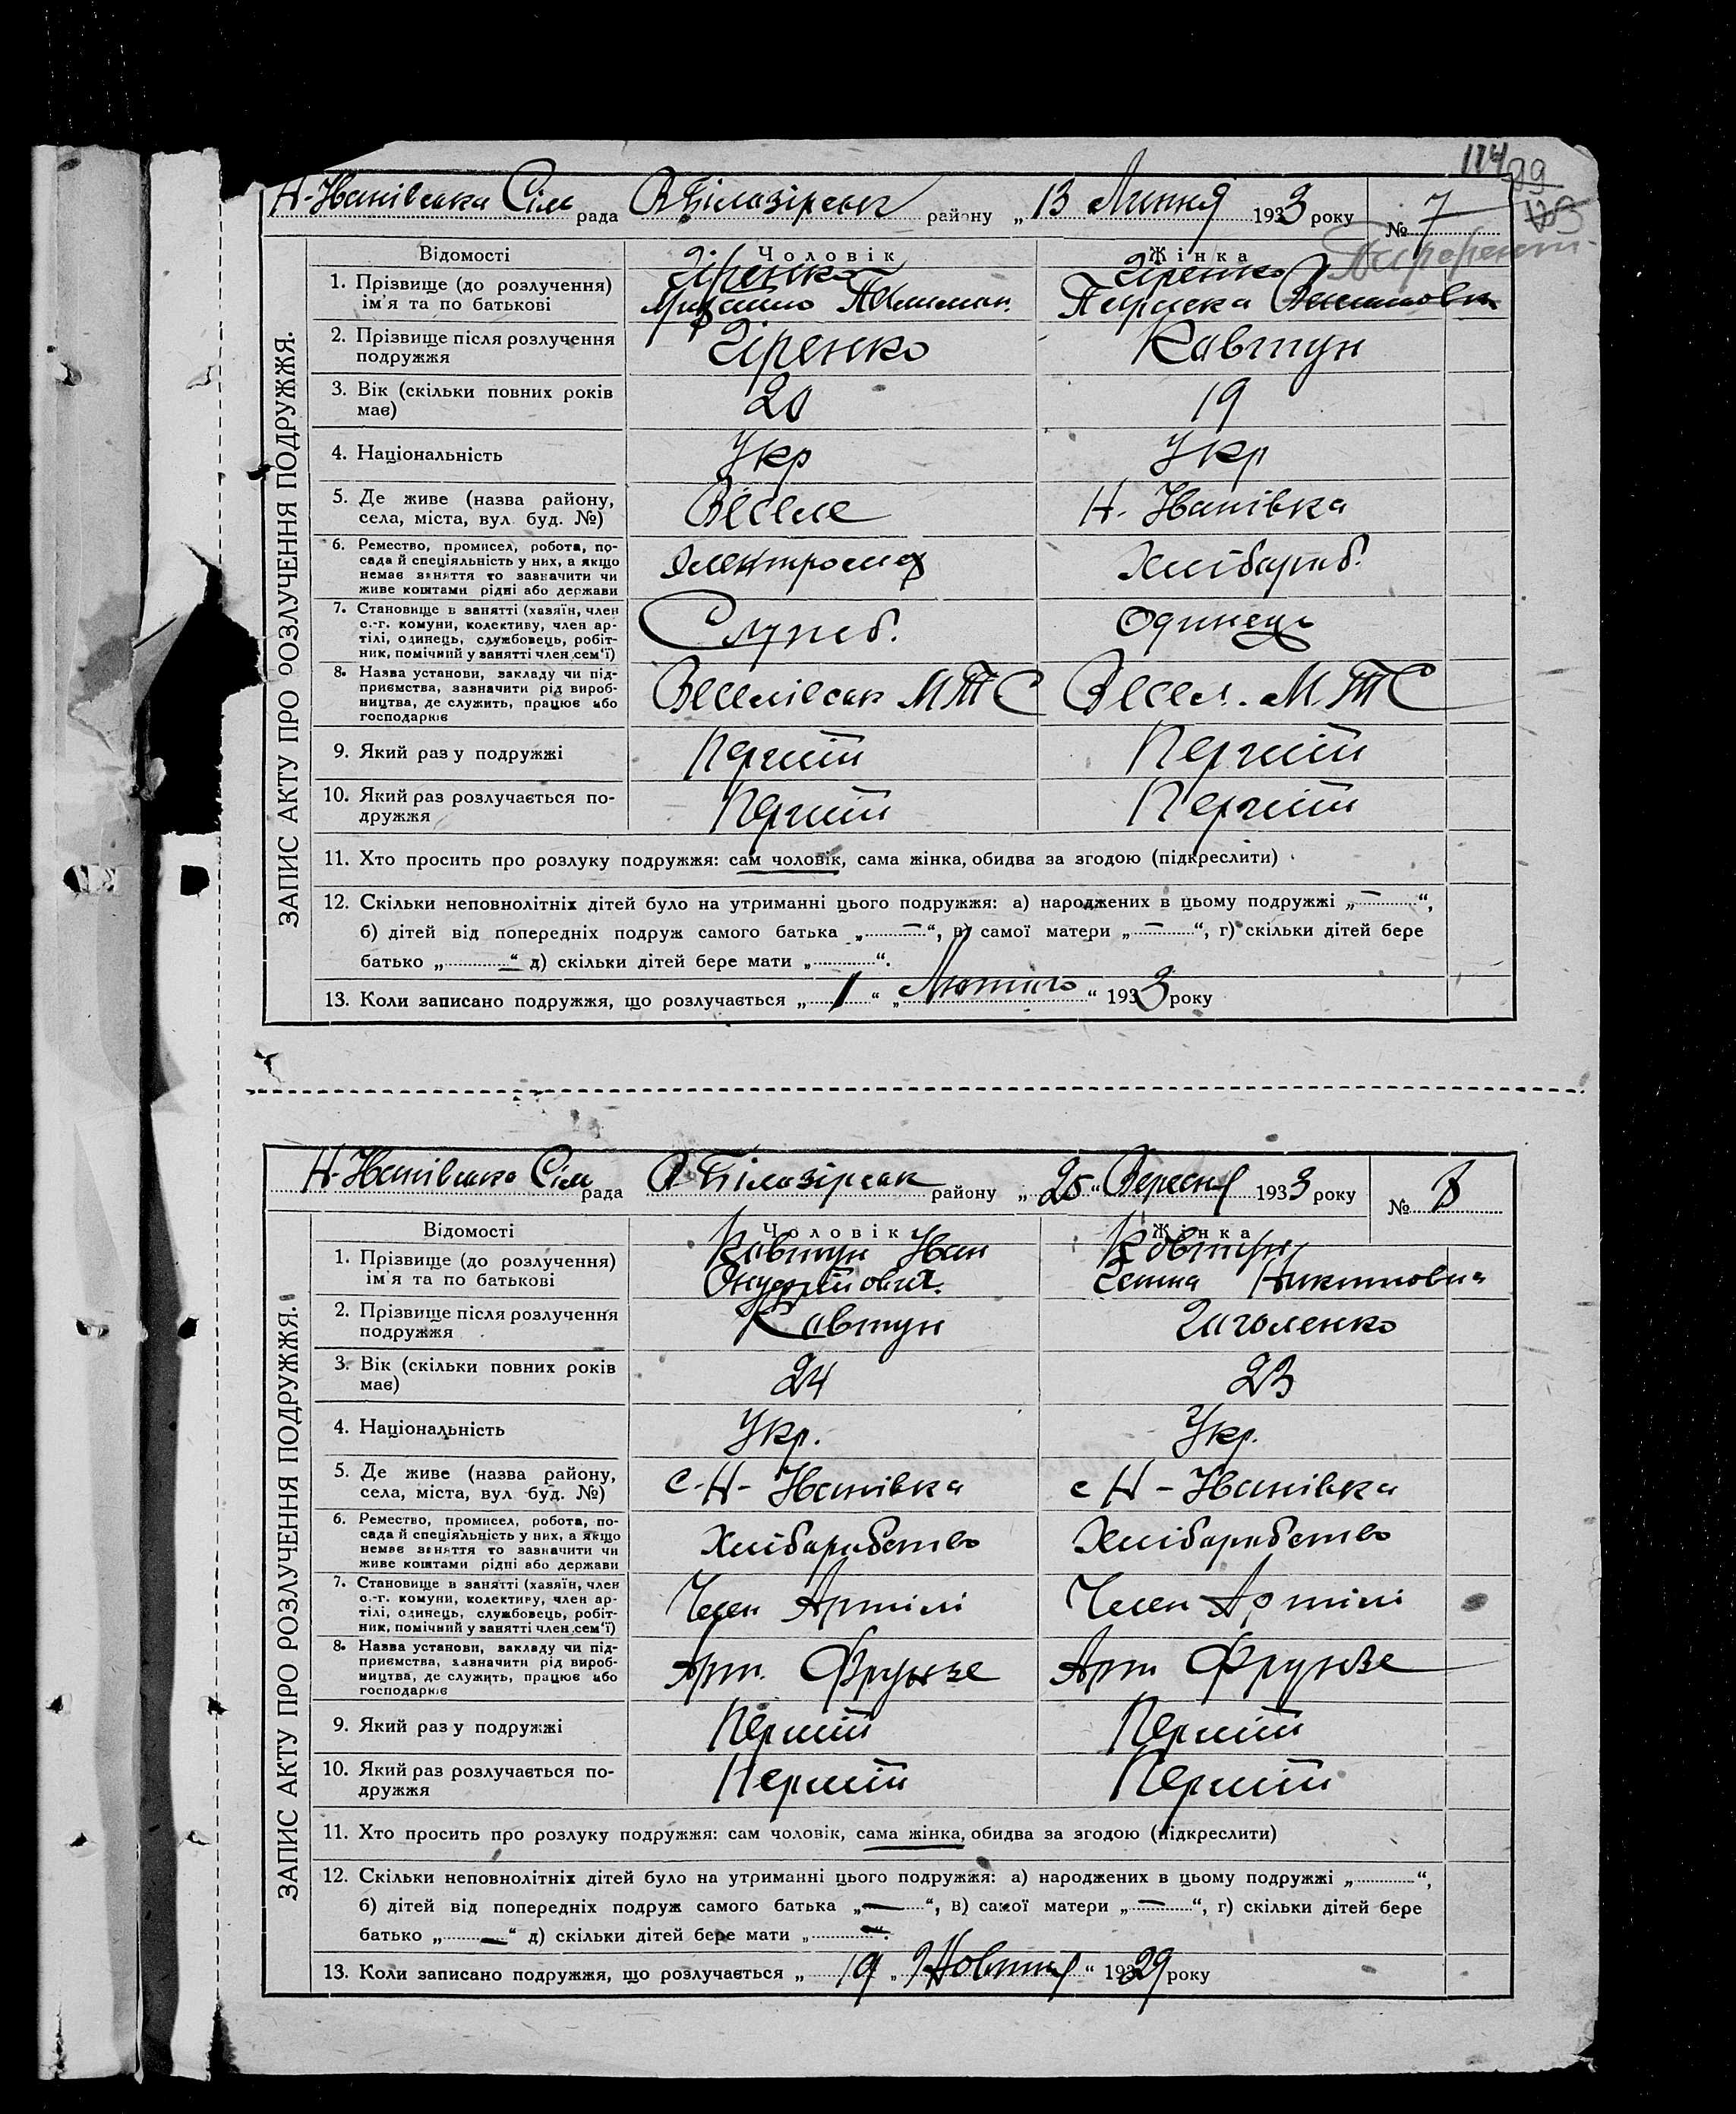 114
99
Н-Іванівська Сіль рада В Білозірськ району „13 Липня 1933 року № 7
Відомості Чоловік Жінка
1. Прізвище (до розлучення) ім'я та по батькові Зіренко Зіренко
2. Прізвище після розлучення подружжя Зіренко Ковтун
3. Вік (скільки повних років має) 20 19
4. Національність Укр Укр
5. Де живе (назва району, села, міста, вул. буд. №) Веселе Н. Іванівка
6. Ремество, промисел, робота, посада й спеціяльність у них, а якщо немає заняття то зазначити чи живе коштами рідні або держави Хлібороб.
7. Становище в занятті (хазяїн, член с.-г. комуни, колективу, член артілі, одинець, службовець, робітник, помічний у занятті член сем'ї) Служб. Одинець
8. Назва установи, закладу чи підприємства, зазначити рід виробництва, де служить, працює або господарює Веселівськ МТС Весел. МТС
9. Який раз у подружжі Перший Перший
10. Який раз розлучається подружжя Перший Перший
11. Хто просить про розлуку подружжя: сам чоловік, сама жінка, обидва за згодою (підкреслити)
12. Скільки неповнолітніх дітей було на утриманні цього подружжя: а) народжених в цьому подружжі „—“,
б) дітей від попередніх подруж самого батька „—“, в) самої матери „—“, г) скільки дітей бере
батько „—“ д) скільки дітей бере мати „ “.
13. Коли записано подружжя, що розлучається „1“ „Лютого“ 1933 року
ЗАПИС АКТУ ПРО РОЗЛУЧЕННЯ ПОДРУЖЖЯ.
Н-Іванівська Сіль рада В Білозірськ району „25“ Вересня 1933 року № 8
Відомості Чоловік Жінка
1. Прізвище (до розлучення) ім'я та по батькові Ковтун Іван Онуфрійович. Ковтун Никитовна
2. Прізвище після розлучення подружжя Ковтун Заголенко
3. Вік (скільки повних років має) 24 23
4. Національність Укр. Укр.
5. Де живе (назва району, села, міста, вул. буд. №) с-Н-Іванівка с Н-Іванівка
6. Ремество, промисел, робота, посада й спеціяльність у них, а якщо немає заняття то зазначити чи живе коштами рідні або держави Хліборобство Хліборобство
7. Становище в занятті (хазяїн, член с.-г. комуни, колективу, член артілі, одинець, службовець, робітник, помічний у занятті член сем'ї) Член Артілі Член Артілі
8. Назва установи, закладу чи підприємства, зазначити рід виробництва, де служить, працює або господарює Арт. Фрунзе Арт Фрунзе
9. Який раз у подружжі Перший Перший
10. Який раз розлучається подружжя Перший Перший
11. Хто просить про розлуку подружжя: сам чоловік, сама жінка, обидва за згодою (підкреслити)
12. Скільки неповнолітніх дітей було на утриманні цього подружжя: а) народжених в цьому подружжі „ “,
б) дітей від попередніх подруж самого батька „—“, в) самої матери „—“, г) скільки дітей бере
батько „—“ д) скільки дітей бере мати „—“.
13. Коли записано подружжя, що розлучається „19 „Жовтня“ 1929 року
ЗАПИС АКТУ ПРО РОЗЛУЧЕННЯ ПОДРУЖЖЯ.